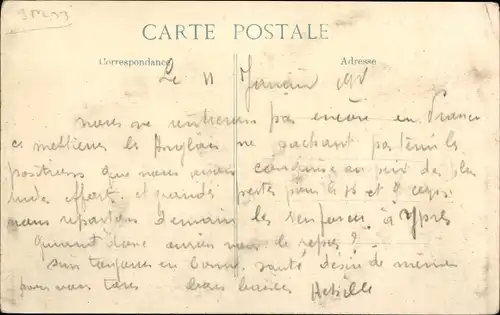 CARTE POSTALE
Correspondance Adresse
Le 11
nous ne rentrerons pas encore en France
ces les Anglais ne sachant pas tenir les
positions que nous avons conquises au prix des plus
rudes effort et grandes pertes pour le 16 et 9 corps
nous repartons demain les renforcer à Ypres
Quand donc aurons nous le repos ?
Suis toujours en bonne santé désire de même
pour vous tous bons baisers